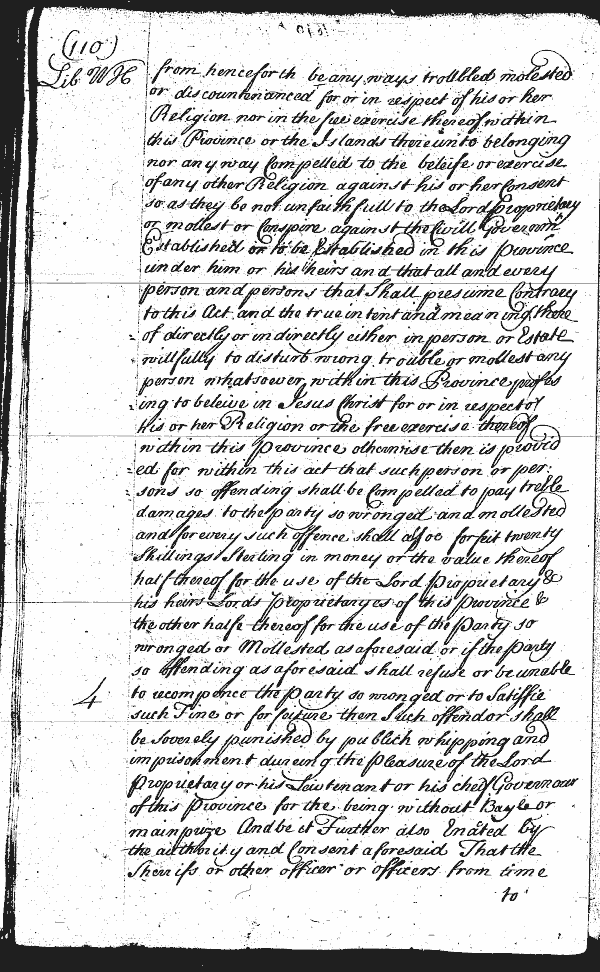 (110)
Lib WH
from henceforth be any ways troubled molested
or discountenanced for or in respect of his or her
Religion nor in the free exercise thereof within
this Province or the Islands thereunto belonging
nor any way Compelled to the beleife or exercise
of any other Religion against his or her Consent
so as they be not unfaithfull to the Lord Proprietary
or mollest or Conspire against the Civill Governmt
Established or to be Established in this Province
under him or his heirs and that all and every
person and persons that Shall presume Contrary
to this Act and the true intent and meaning there
of directly or indirectly either in person or Estate
willfully to disturb wrong trouble or mollest any
person whatsoever within this Province profes
ing to beleive in Jesus Christ for or in respect of
his or her Religion or the free exercise thereof
within this Province otherwise then is provid
ed for within this act that such person or per:
sons so offending shall be Compelled to pay treble
damages to the party so wronged and mollested
and for every such offence shall also forfeit twenty
Shillings Sterling in money or the value thereof
half thereof for the use of the Lord Proprietary &
his heirs Lords Proprietaryes of this Province &
the other halfe thereof for the use of the Party so
wronged or Mollested as aforesaid or if the Party
so offending as aforesaid shall refuse or be unable
4
to recompence the Party so wronged or to Satisfie
such Fine or forfeiture then Such offendor shall
be Severely punished by publick whipping and
imprisonment dureing the Pleasure of the Lord
Proprietary or his Lieutenant or his cheif Governour
of this Province for the being without Bayle or
mainprize And be it Further also Enated by
the authority and Consent aforesaid That the
Sherifs or other officer or officers from time
to